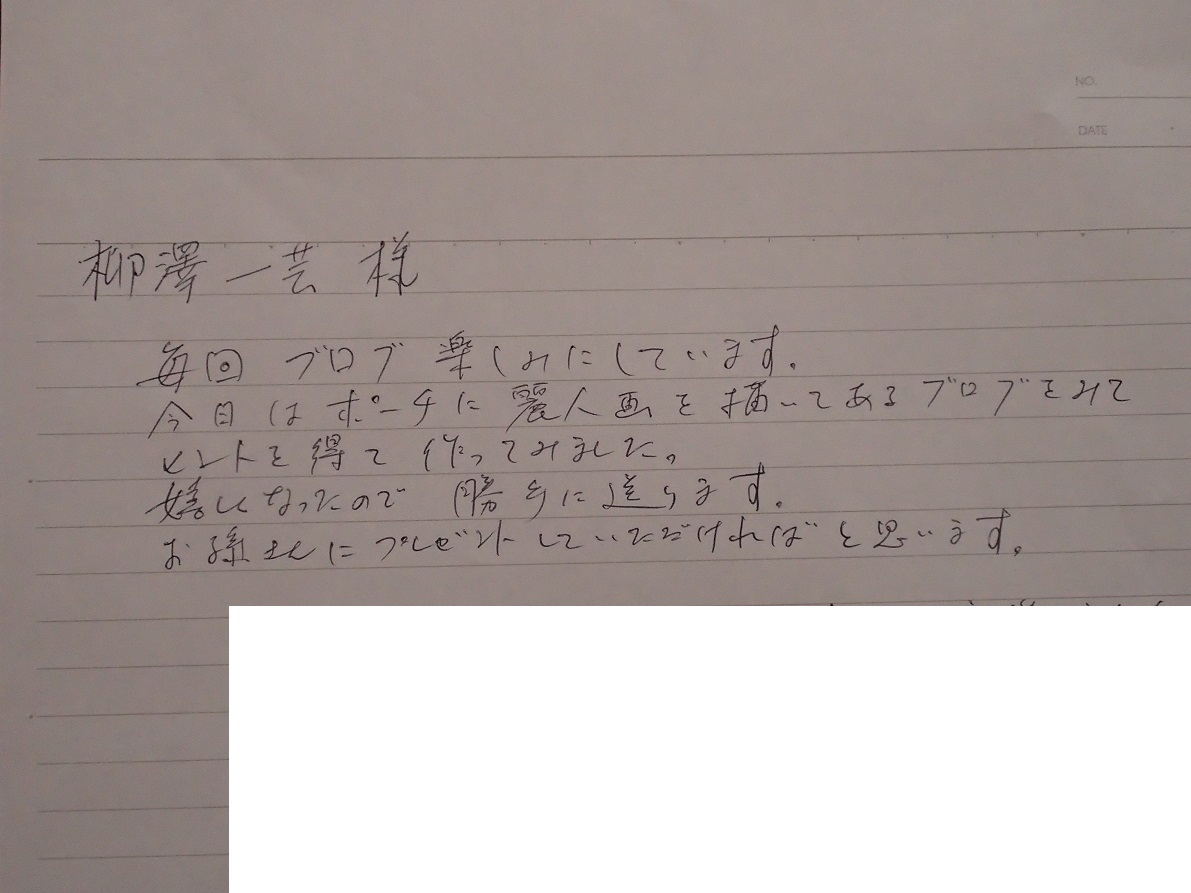 NO.
DATE
柳澤一芸 様
毎回 ブログ 楽しみにしています。
今日は ポーチに 麗人画を描いてあるブログをみて
ヒントを得て 作ってみました。
嬉しくなったので 勝手に送ります。
お孫さんにプレゼントしていただければと思います。